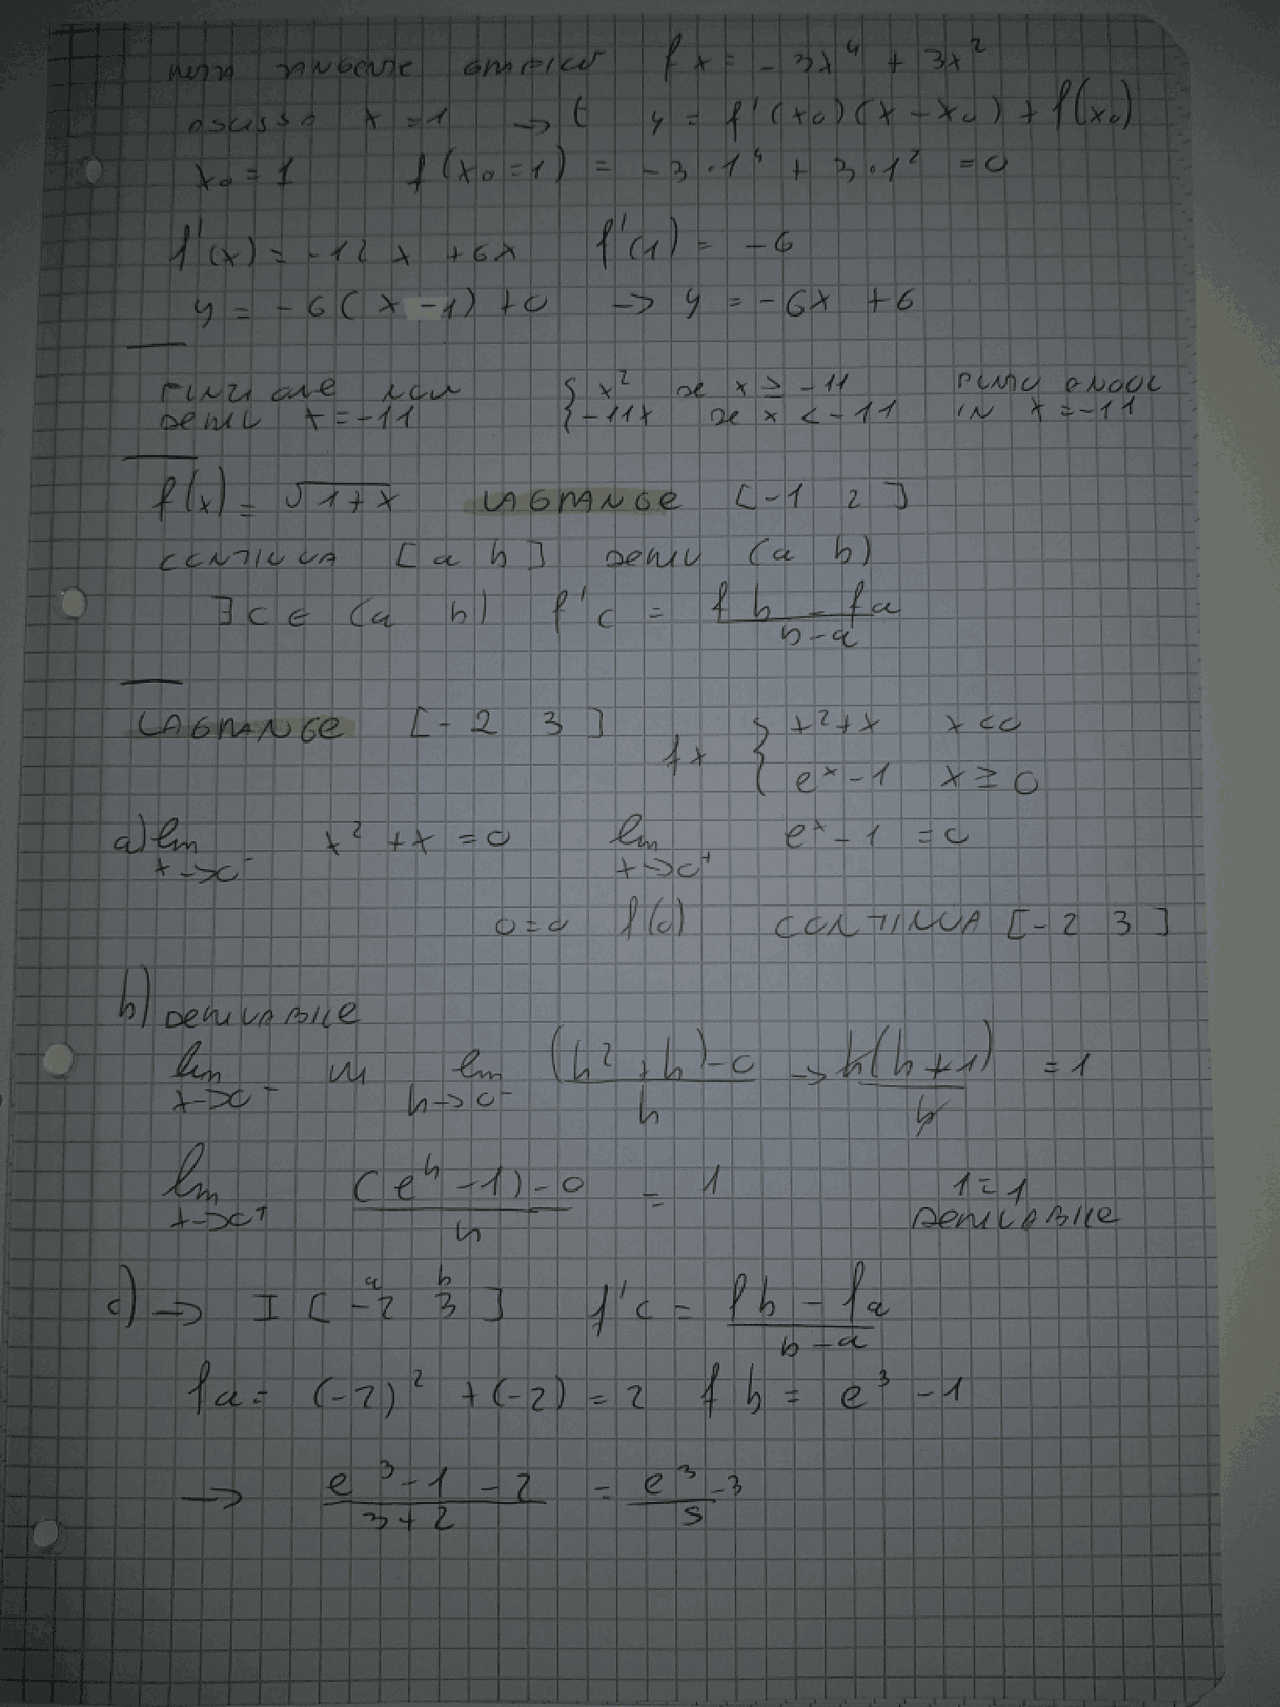 retta tangente grafico f x = - 3x⁴ + 3x²
ascissa x = 1 → t y = f'(x₀)(x - x₀) + f(x₀)
x₀ = 1 f(x₀ = 1) = -3 · 1⁴ + 3 · 1² = 0
f'(x) = -12 x + 6x f'(1) = -6
y = -6 ( x - 1) + 0 → y = -6x + 6
FUNZIONE NON { x² se x ≥ -11 PUNTO ANGOL
DERIV x = -11 { -11x se x < -11 IN x = -11
f(x) = √1+x LAGRANGE [-1 2]
CONTINUA [a b] DERIV (a b)
∃ c ∈ (a b) f'c = f b - f a / b - a
LAGRANGE [-2 3] f x { x² + x x < 0
{ e^x - 1 x ≥ 0
a) lim x→0⁻ x² + x = 0 lim x→0⁺ e^x - 1 = 0
0 = 0 f(0) CONTINUA [-2 3]
b) DERIVABILE
lim x→0⁻ lim h→0⁻ (h² + h) - 0 / h → h(h + 1) / h = 1
lim x→0⁺ (e^h - 1) - 0 / h = 1 1 = 1
DERIVABILE
c) → I [-2 3] a b f'c = f b - f a / b - a
f a = (-2)² + (-2) = 2 f b = e³ - 1
→ e³ - 1 - 2 / 3 + 2 = e³ - 3 / 5